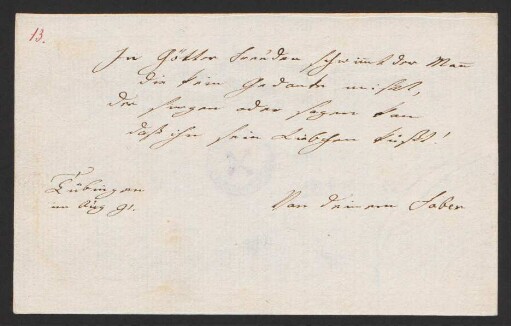 13.
In Götter Freuden schwimt der Mañ
die kein Gedanke mißt,
der singen oder sagen kan
daß ihn sein Liebchen küßt!
Tübingen
im Aug 91.
Von deinem